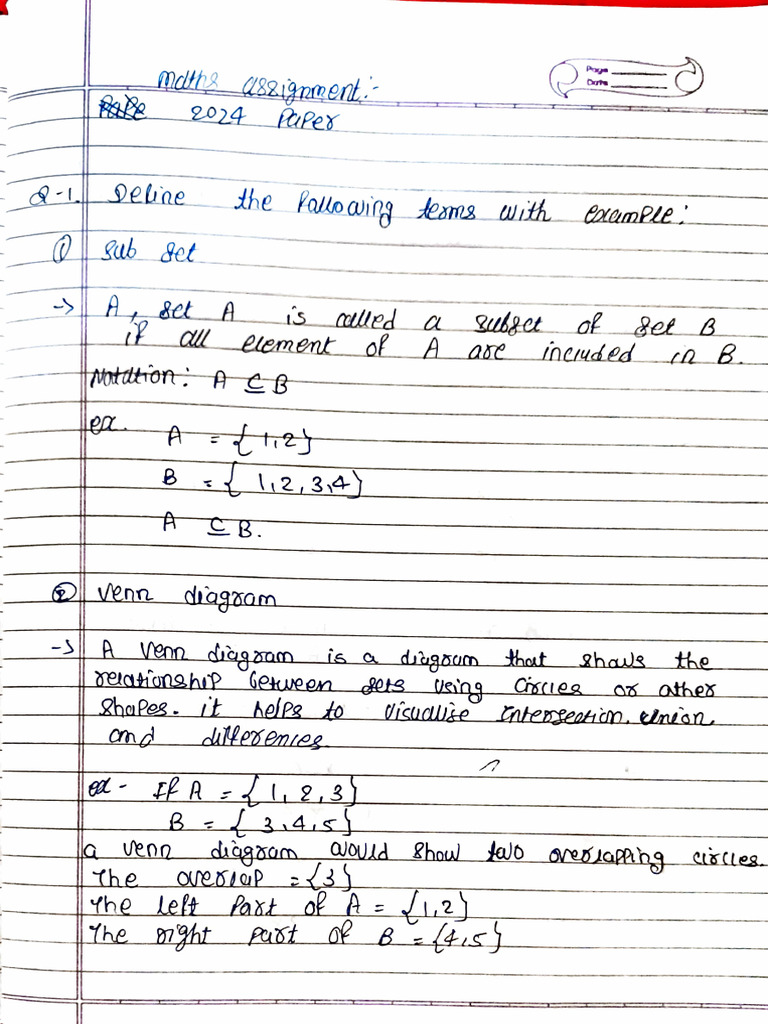 Page
Date
maths assignment:-
2024 Paper
Q-1. Define the following terms with example:
① sub set
-> A, set A is called a subset of set B
if all element of A are included in B.
Notation: A ⊆ B
ex.
A = {1,2}
B = {1,2,3,4}
A ⊆ B.
② Venn diagram
-> A Venn diagram is a diagram that shows the
relationship between sets using circles or other
shapes. it helps to visualise intersection, union,
and differences.
ex - If A = {1, 2, 3}
B = {3,4,5}
a Venn diagram would show two overlapping circles.
The overlap = {3}
The left part of A = {1,2}
The right part of B = {4,5}